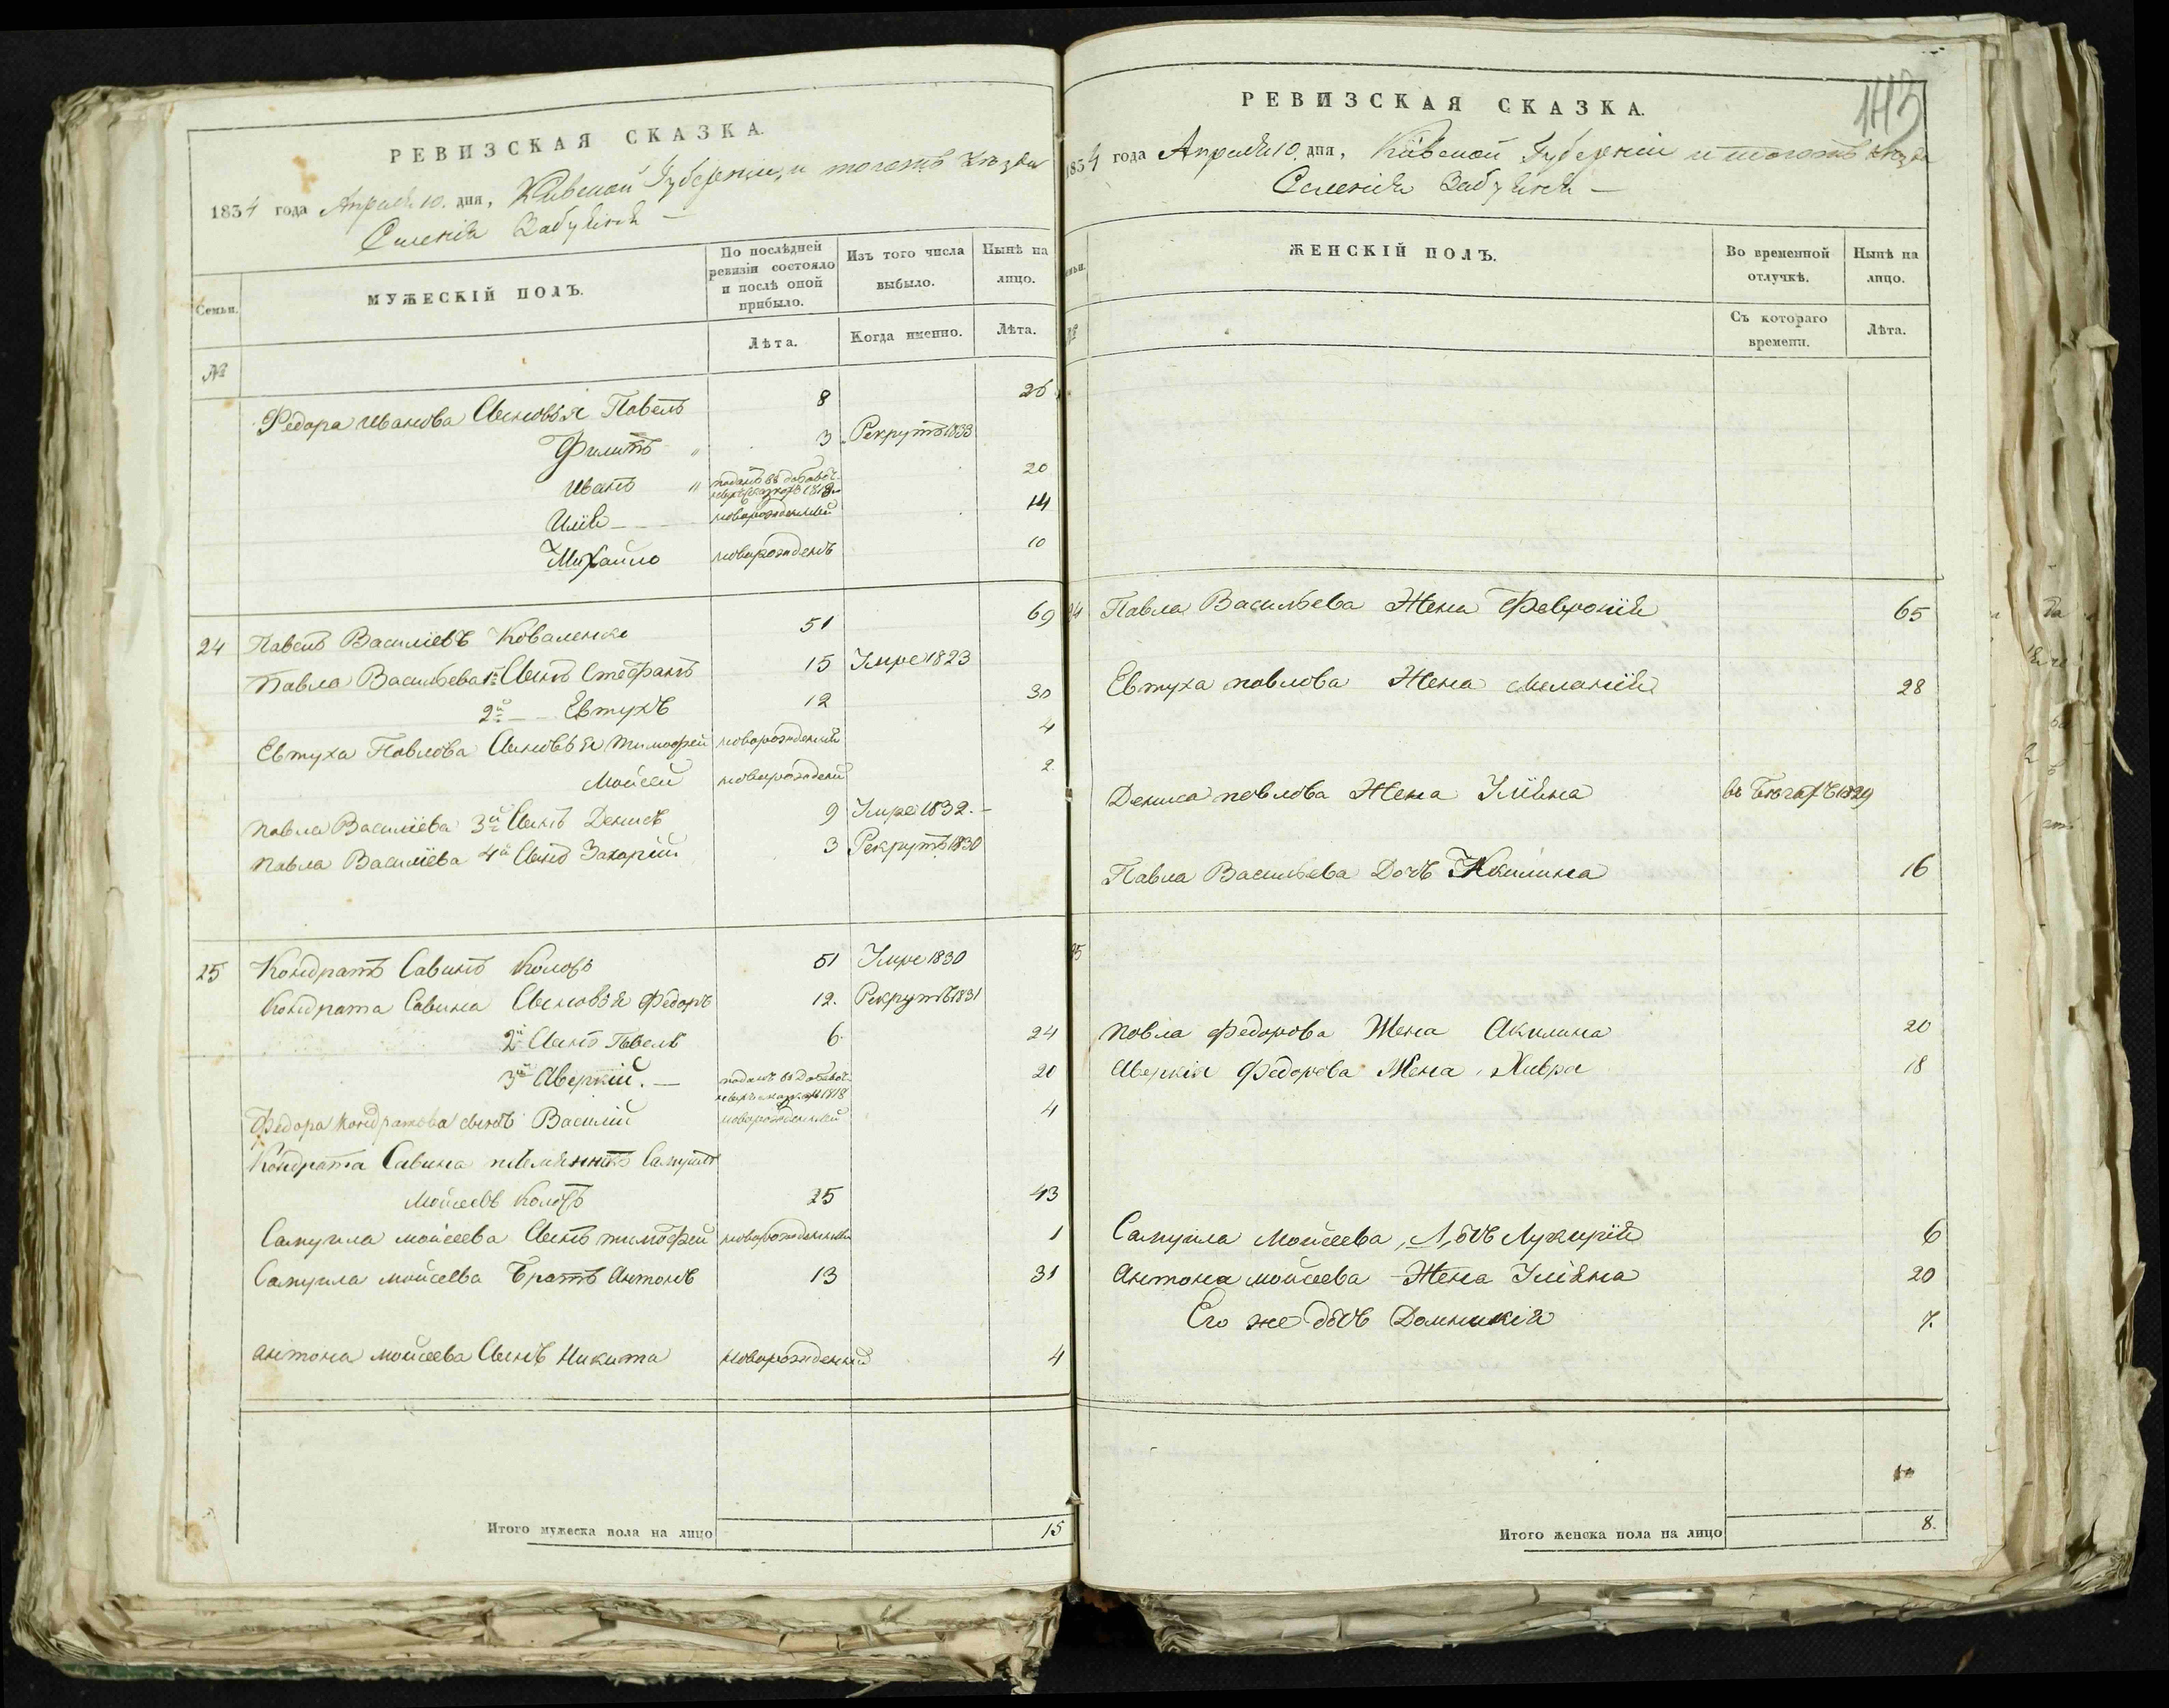 РЕВИЗСКАЯ СКАЗКА.
1834 года Апреля 10. дня, Кіевской Губерніи, и тогожъ уезда
Селенія Забуяня —
Семьи.
МУЖЕСКІЙ ПОЛЪ.
По послѣдней ревизіи состояло и послѣ оной прибыло.
Изъ того числа выбыло.
Нынѣ на лицо.
№
Лѣта.
Когда именно.
Лѣта.
Федора Иванова Сыновья Павелъ 8 26
Филипъ " 3 Рекрутъ 1833
Иванъ " поданъ въ добавоч. 1818 20
Илія — новорожденный 14
Михайло новорожденъ 10
24 Павелъ Василіевъ Коваленко 51 69
Павла Васильева 1й Сынъ Стефанъ 15 Умре 1823
2й — Евтухъ 12 30
Евтуха Павлова Сыновья Тимофей новорожденный 4
Мойсей новорожденый 2
Павла Василіева 3й Сынъ Денисъ 9 Умре 1832. —
Павла Василіева 4й Сынъ Захарій 3 Рекрутъ 1830
25 Кондратъ Савинъ 51 Умре 1830
Кондрата Савина Сыновья Федоръ 12. Рекрутъ 1831
2й Сынъ Павелъ 6. 24
3й Аверкій. — поданъ въ добавоч. 1818 20
Федора Кондратова сынъ Василій новорожденный 4
Кондрата Савина племянникъ Самуилъ
Мойсеевъ 25 43
Самуила Мойсеева Сынъ Тимофей новорожденный 1
Самуила Мойсеева Братъ Антонъ 13 31
Антона Мойсеева Сынъ Никита новорожденый 4
Итого мужеска пола на лицо 15
143
РЕВИЗСКАЯ СКАЗКА.
1834 года Апреля 10. дня, Кіевской Губерніи и тогожъ уезда
Селенія Забуяня —
ЖЕНСКІЙ ПОЛЪ.
Во временной отлучкѣ.
Нынѣ на лицо.
№
Съ котораго времени.
Лѣта.
24 Павла Васильева Жена Февронія 65
Евтуха Павлова Жена Меланія 28
Дениса Павлова Жена Уліяна въ бѣгахъ 1829
Павла Васильева Дочъ Акилина 16
25
Павла Федорова Жена Акилина 20
Аверкія Федорова Жена Хивря 18
Самуила Мойсеева, 1, дочъ Лукирія 6
Антона Мойсеева Жена Уліяна 20
Его же дочъ Домникія 7.
Итого женска пола на лицо 8.